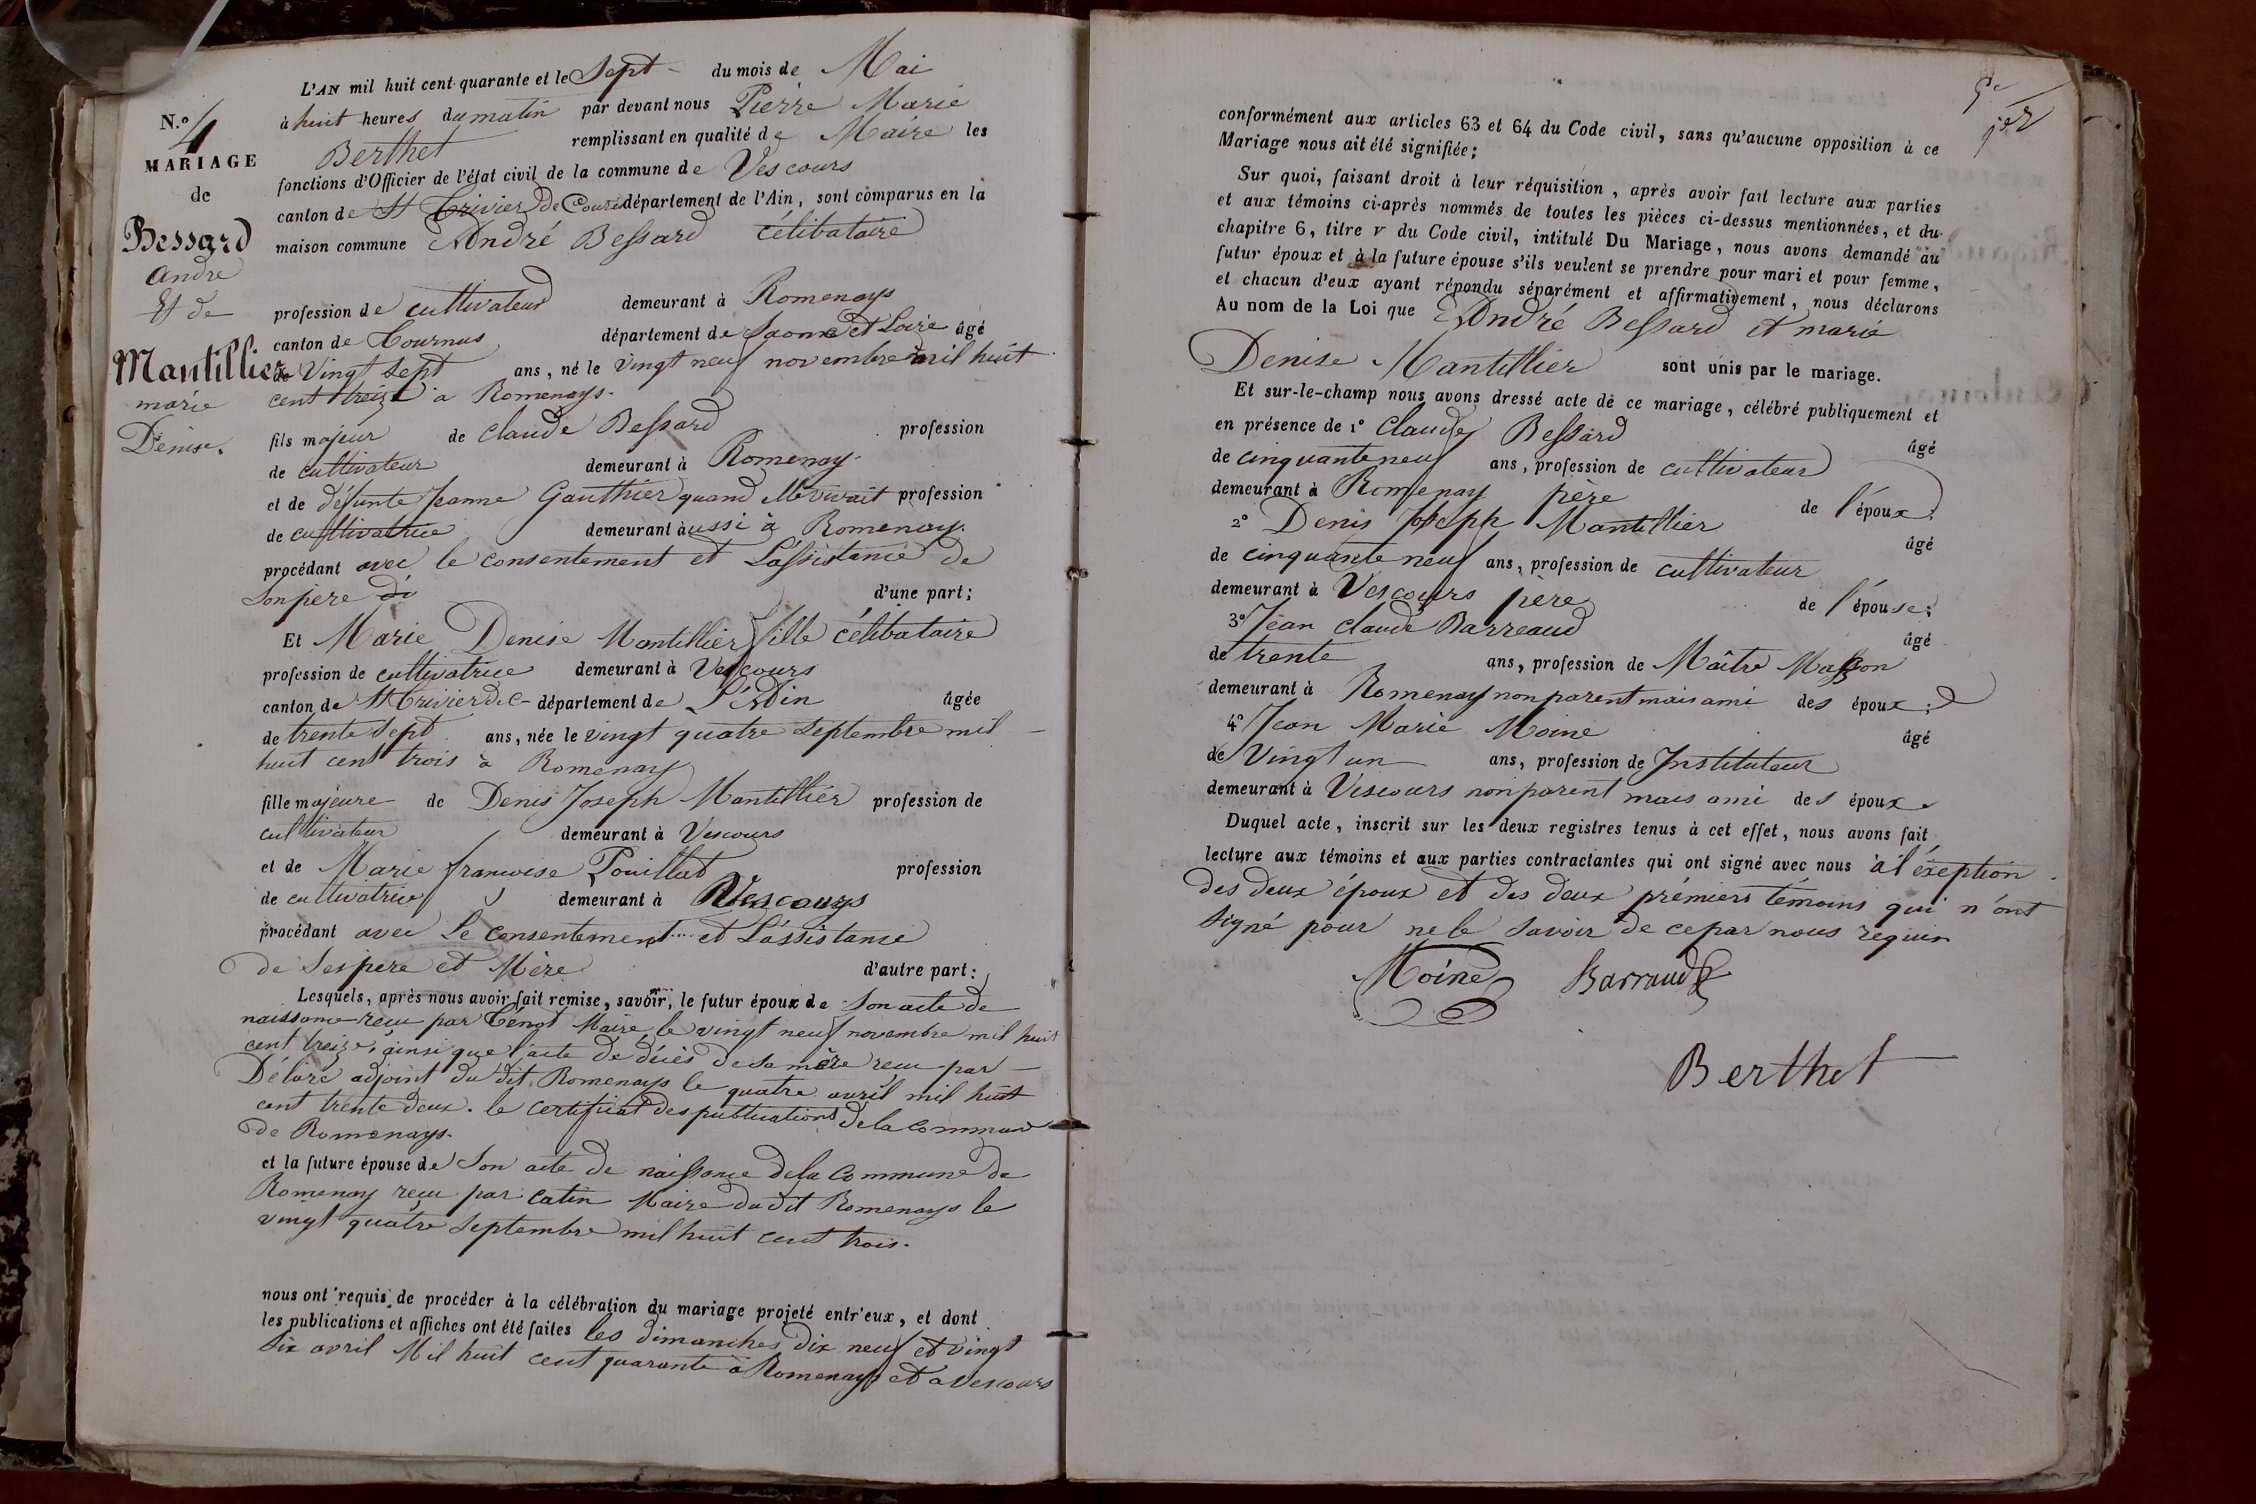 N.o 4
MARIAGE
de
Bessard
André
Et de
Mantillier
marie
Denise.
L'AN mil huit cent quarante et le Sept du mois de Mai
à huit heures du matin par devant nous Pierre Marie
Berthet remplissant en qualité de Maire les
fonctions d'Officier de l'état civil de la commune de Vescours
canton de St Trivier de Courtes département de l'Ain, sont comparus en la
maison commune André Bessard célibataire
profession de cultivateur demeurant à Romenays
canton de Tournus département de Saone et Loire âgé
de Vingt sept ans, né le vingt neuf novembre mil huit
cent treize à Romenays.
fils majeur de Claude Bessard profession
de cultivateur demeurant à Romenay.
et de défunte Jeanne Gauthier quand elle vivait profession
de cultivatrice demeurant aussi à Romenay.
procédant avec le consentement et L'assistance de
Son père d'une part;
Et Marie Denise Mantillier fille célibataire
profession de cultivatrice demeurant à Vescours
canton de St Trivier de C- département de L'Ain âgée
de trente sept ans, née le vingt quatre septembre mil
huit cent trois à Romenay
fille majeure de Denis Joseph Mantillier profession de
cultivateur demeurant à Vescours
et de Marie francoise Pouillat profession
de cultivatrice demeurant à Vescours
procédant avec Le consentement et L'assistance
de Ses père et Mère d'autre part;
Lesquels, après nous avoir fait remise, savoir, le futur époux de Son acte de
naissance reçu par Maire le vingt neuf novembre mil huit
cent treize, ainsi que l'acte de décès de sa mère reçu par
adjoint du dit Romenays le quatre avril mil huit
cent trente deux. le certificat des publications de la commune
de Romenays.
et la future épouse de Son acte de naissance de la Commune de
Romenay reçu par Catin Maire du dit Romenays le
vingt quatre Septembre mil huit cent trois.
nous ont requis de procéder à la célébration du mariage projeté entr'eux, et dont
les publications et affiches ont été faites les dimanches dix neuf et vingt
six avril Mil huit cent quarante à Romenays et à Vescours
conformément aux articles 63 et 64 du Code civil, sans qu'aucune opposition à ce
Mariage nous ait été signifiée;
Sur quoi, faisant droit à leur réquisition, après avoir fait lecture aux parties
et aux témoins ci-après nommés de toutes les pièces ci-dessus mentionnées, et du
chapitre 6, titre v du Code civil, intitulé Du Mariage, nous avons demandé au
futur époux et à la future épouse s'ils veulent se prendre pour mari et pour femme,
et chacun d'eux ayant répondu séparément et affirmativement, nous déclarons
Au nom de la Loi que André Bessard et marie
Denise Mantillier sont unis par le mariage.
Et sur-le-champ nous avons dressé acte de ce mariage, célébré publiquement et
en présence de 1° Claude Bessard âgé
de cinquante neuf ans, profession de cultivateur
demeurant à Romenay père de l'époux;
2° Denis Joseph Mantillier âgé
de cinquante neuf ans, profession de cultivateur
demeurant à Vescours père de l'épouse;
3° Jean Claude Barreaud âgé
de trente ans, profession de Maître Masson
demeurant à Romenay non parent mais ami des époux;
4° Jean Marie Moine âgé
de Vingt un ans, profession de Instituteur
demeurant à Vescours non parent mais ami des époux
Duquel acte, inscrit sur les deux registres tenus à cet effet, nous avons fait
lecture aux témoins et aux parties contractantes qui ont signé avec nous à l'éxeption
des deux époux et des deux prémiers témoins qui n'ont
signé pour ne le Savoir de ce par nous requis
Moine Barraud
Berthet